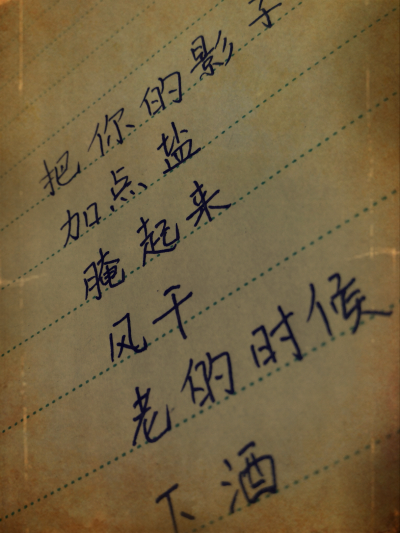 把你的影子
加点盐
腌起来
风干
老的时候
下酒